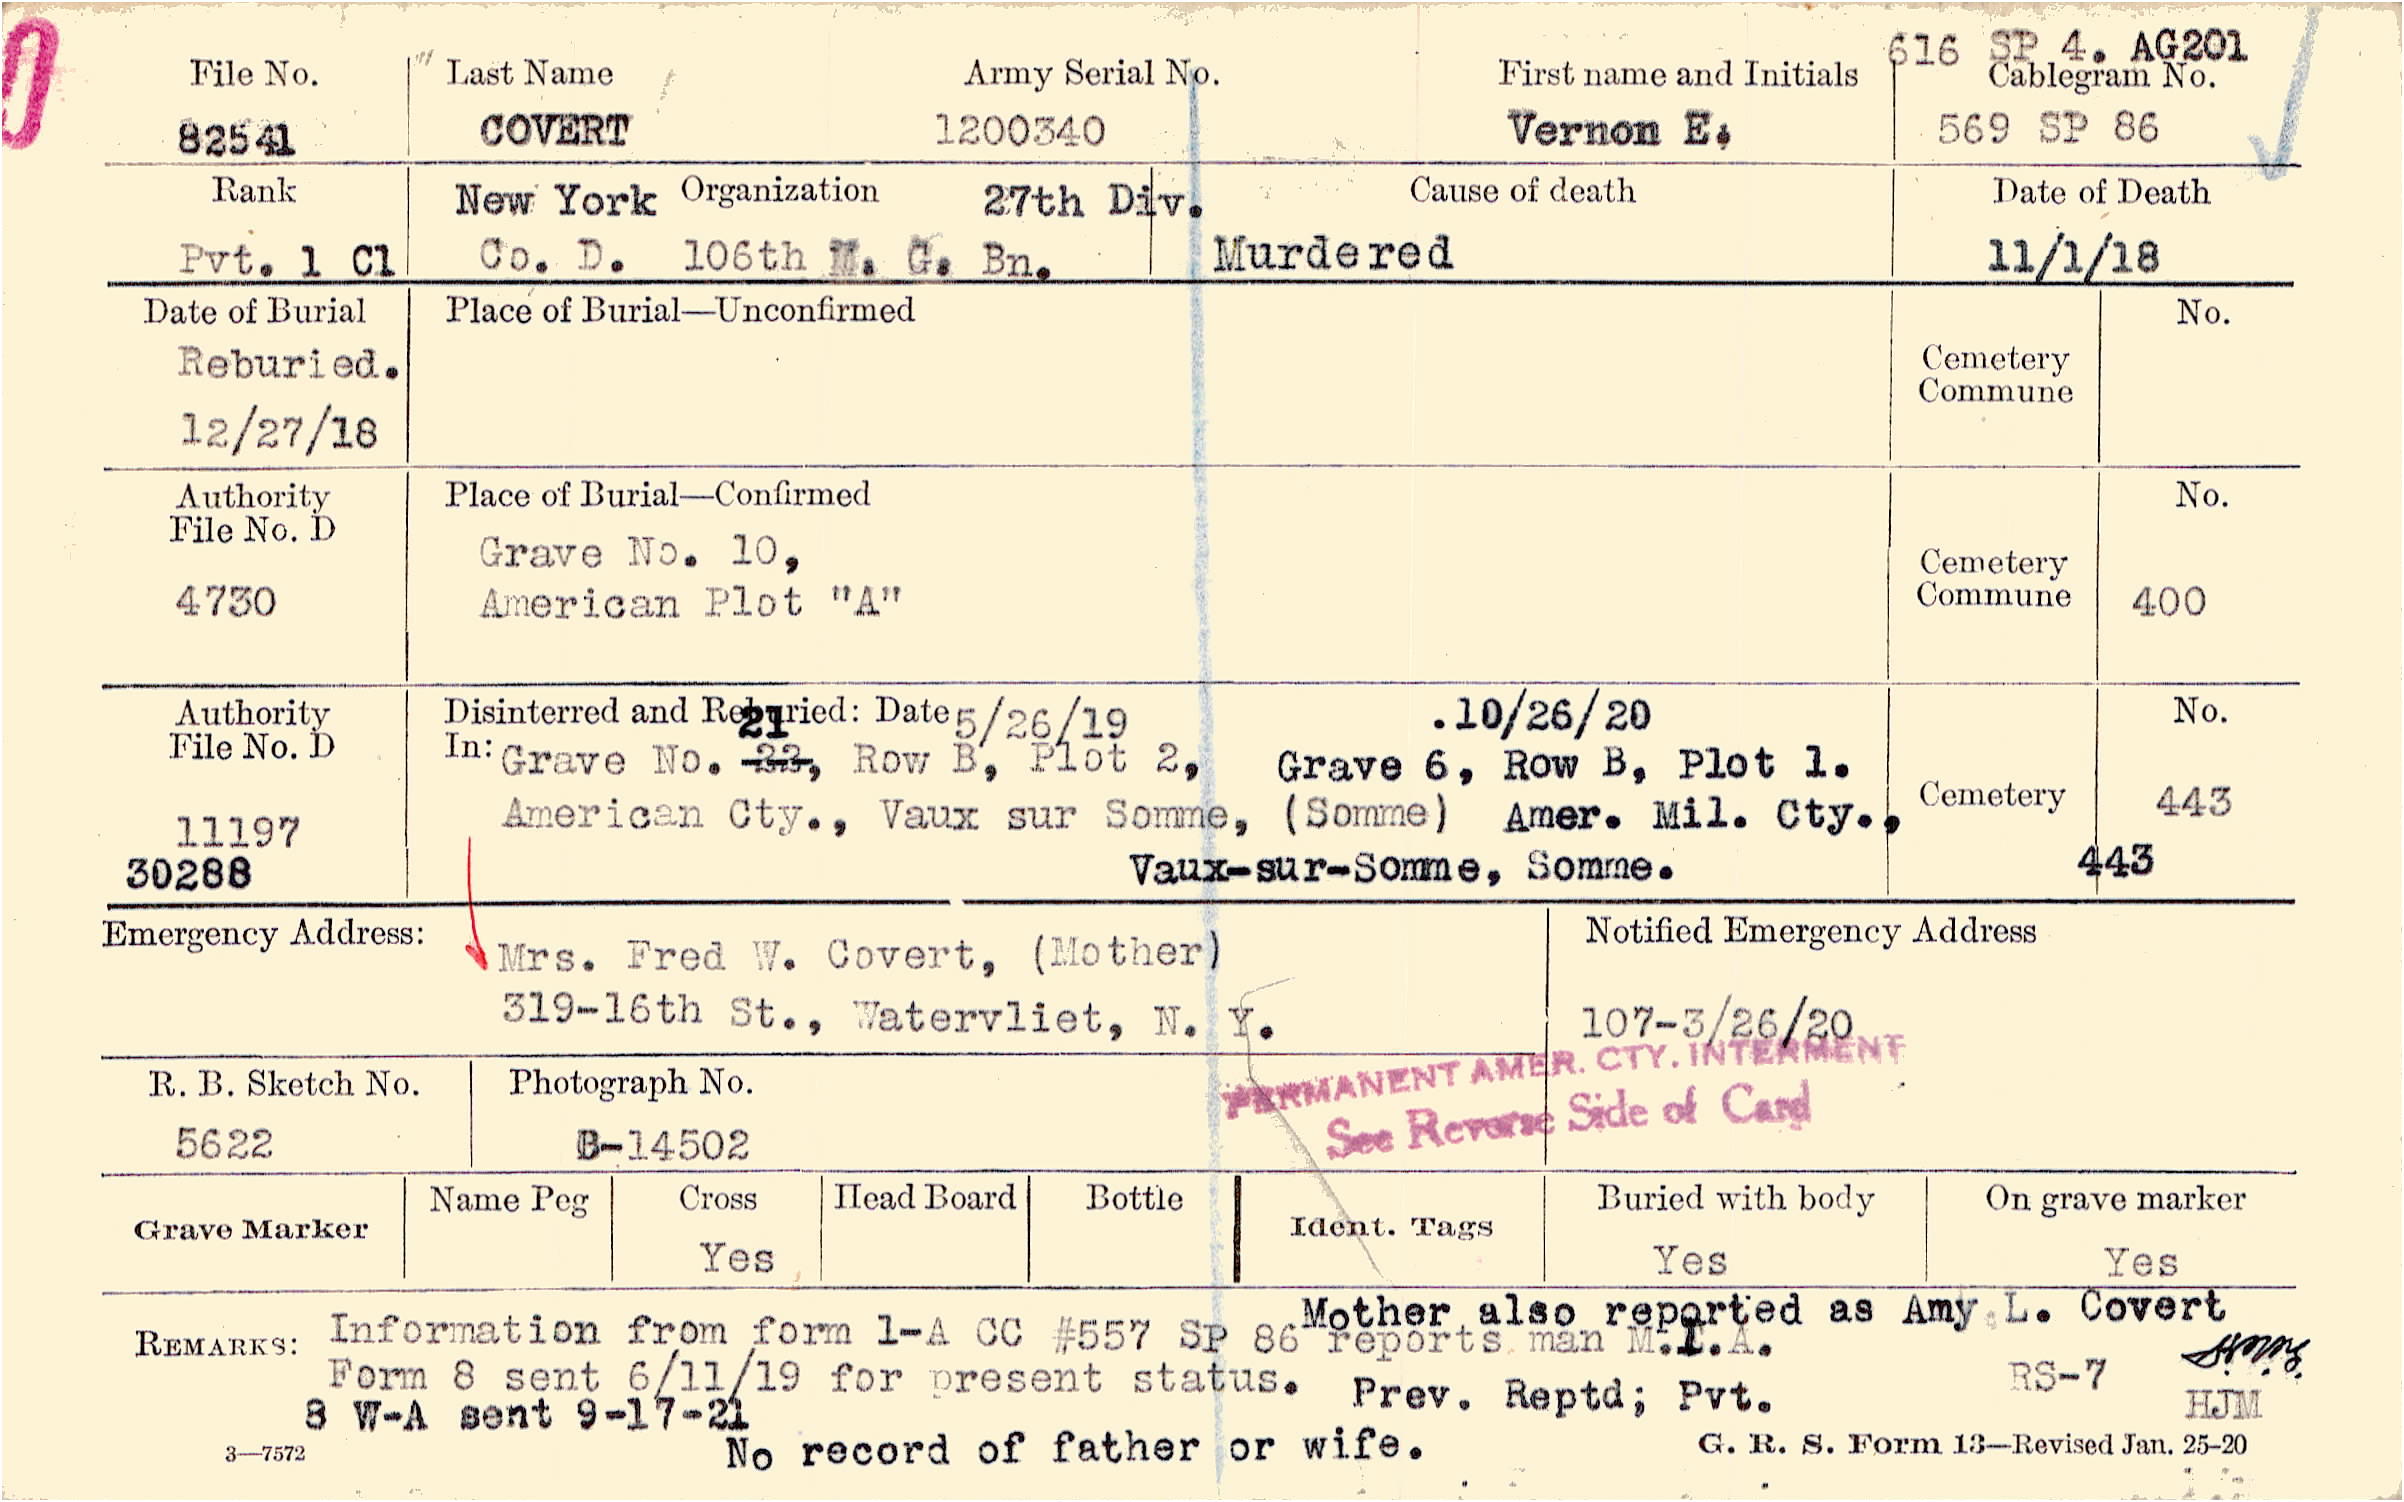 616 SP 4. AG201
File No. Last Name Army Serial No. First name and Initials Cablegram No.
82541 COVERT 1200340 Vernon E. 569 SP 86
Rank New York Organization 27th Div. Cause of death Date of Death
Pvt. 1 Cl Co. D. 106th M. G. Bn. Murdered 11/1/18
Date of Burial Place of Burial—Unconfirmed No.
Reburied. Cemetery
Commune
12/27/18
Authority Place of Burial—Confirmed No.
File No. D
Grave No. 10, Cemetery
4730 American Plot "A" Commune 400
Authority Disinterred and Reburied: Date 5/26/19 .10/26/20 No.
21
File No. D In: Grave No. 22, Row B, Plot 2, Grave 6, Row B, Plot 1.
11197 American Cty., Vaux sur Somme, (Somme) Amer. Mil. Cty., Cemetery 443
30288 Vaux-sur-Somme, Somme. 443
Emergency Address: Notified Emergency Address
Mrs. Fred W. Covert, (Mother)
319-16th St., Watervliet, N. Y. 107-3/26/20
PERMANENT AMER. CTY. INTERMENT
See Reverse Side of Card
R. B. Sketch No. Photograph No.
5622 B-14502
Grave Marker Name Peg Cross Head Board Bottle Ident. Tags Buried with body On grave marker
Yes Yes Yes
Mother also reported as Amy L. Covert
REMARKS: Information from form 1-A CC #557 SP 86 reports man M.I.A.
Form 8 sent 6/11/19 for present status. Prev. Reptd; Pvt. RS-7
8 W-A sent 9-17-21 HJM
No record of father or wife.
3—7572 G. R. S. Form 13—Revised Jan. 25-20